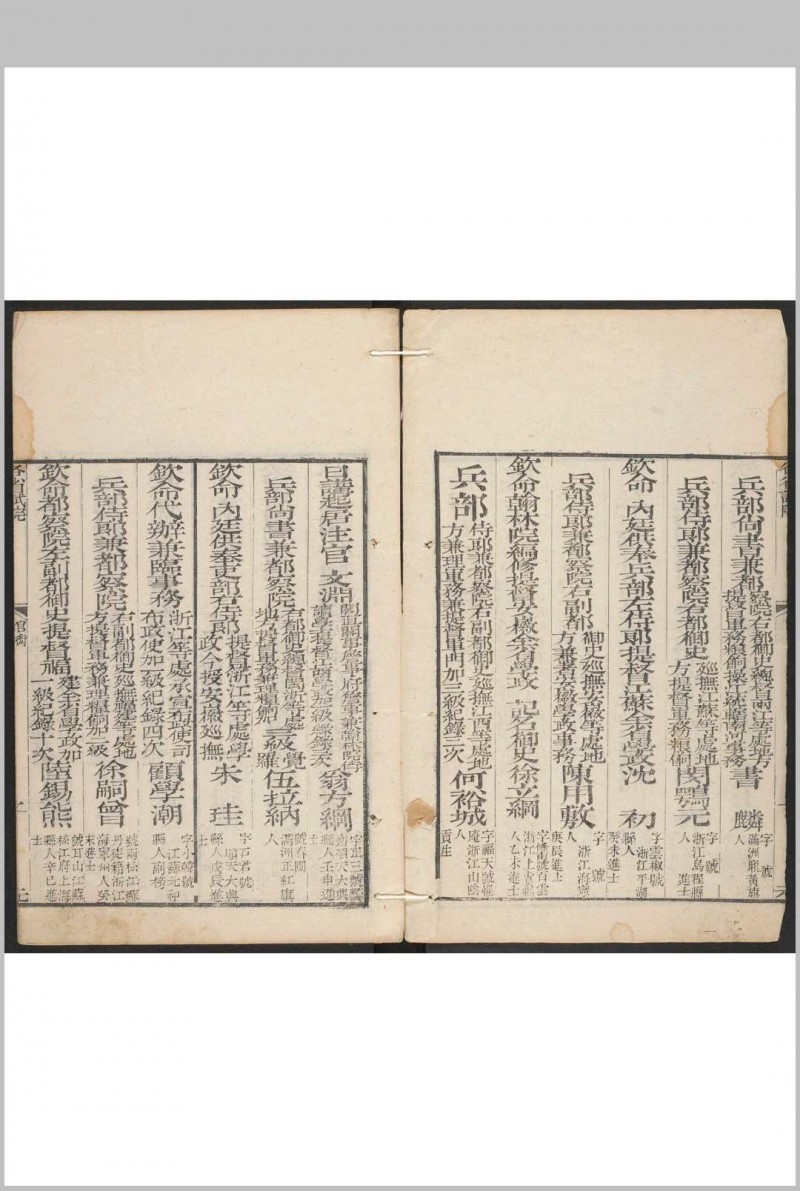 兵部尚書兼都察院右都御史總督兩江等處地方
提督軍務糧餉操江統轄南河事務書 麟
字 號
滿洲鑲黃旗
兵部侍郎兼都察院右都御史巡撫江蘇等處地
方提督軍務糧餉閔鶚元
字 號
浙江烏程縣
人 進士
欽命 內廷供奉兵部左侍郎提督江蘇全省學政沈 初
字雲椒號
浙江平湖
縣人
癸未進士
兵部侍郎兼都察院右副都御史巡撫安徽等處地
方兼署安徽學政事務陳用敷
字 號
浙江海寧
人
庚辰進士
欽命翰林院編修提督安徽全省學政 記名御史徐立綱
字 號百雲
浙江上虞縣
人乙未進士
兵部侍郎兼都察院右副都御史巡撫江西等處地
方兼理軍務兼提督軍門加三級紀錄三次何裕城
字福天號
庵浙江山陰
人
貢生
日講起居注官 文淵閣直閣事詹事府詹事兼翰林院侍
讀學士提督江西學政加級紀錄六次翁方綱
字正三號覃
谿順天大興
縣人壬申進
士
兵部尚書兼都察院右都御史總督閩浙等處
地方提督軍務兼理糧餉加三級覺羅伍拉納
號春圃
滿洲正紅旗
人
欽命 內廷供奉吏部右侍郎提督浙江等處學
政今授安徽巡撫朱 珪
字石君號
順天大興
縣人戊辰進
士
欽命代辦兼臨事務浙江等處承宣布政使司
布政使加一級紀錄四次顧學潮
字小韓號
江蘇元和
縣人副榜
兵部侍郎兼都察院右副都御史巡撫福建等處地
方提督軍務兼理糧餉加二級徐嗣曾
號兩松江蘇
丹徒籍浙江
海寧州人癸
未進士
欽命都察院左副都御史提督福建全省學政加
一級紀錄十次陸錫熊
號耳山江蘇
松江府上海
縣人辛巳進
士
各省試院 官銜 七